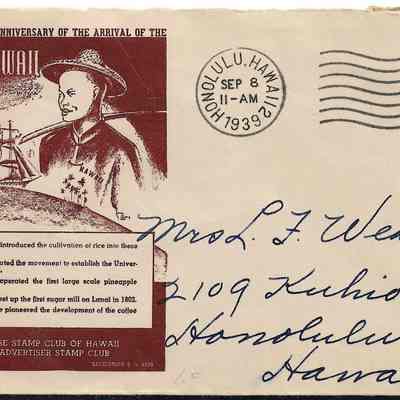 NNIVERSARY OF THE ARRIVAL OF THE
WAII
HAWAII
introduced the cultivation of rice into these
ated the movement to establish the Univer-
operated the first large scale pineapple
set up the first sugar mill on Lanai in 1802.
e pioneered the development of the coffee
SE STAMP CLUB OF HAWAII
ADVERTISER STAMP CLUB
HONOLULU, HAWAII 2
SEP 8
11-AM
1939
Mrs L. F. Wea
2109 Kuhio
Honolulu
Hawa